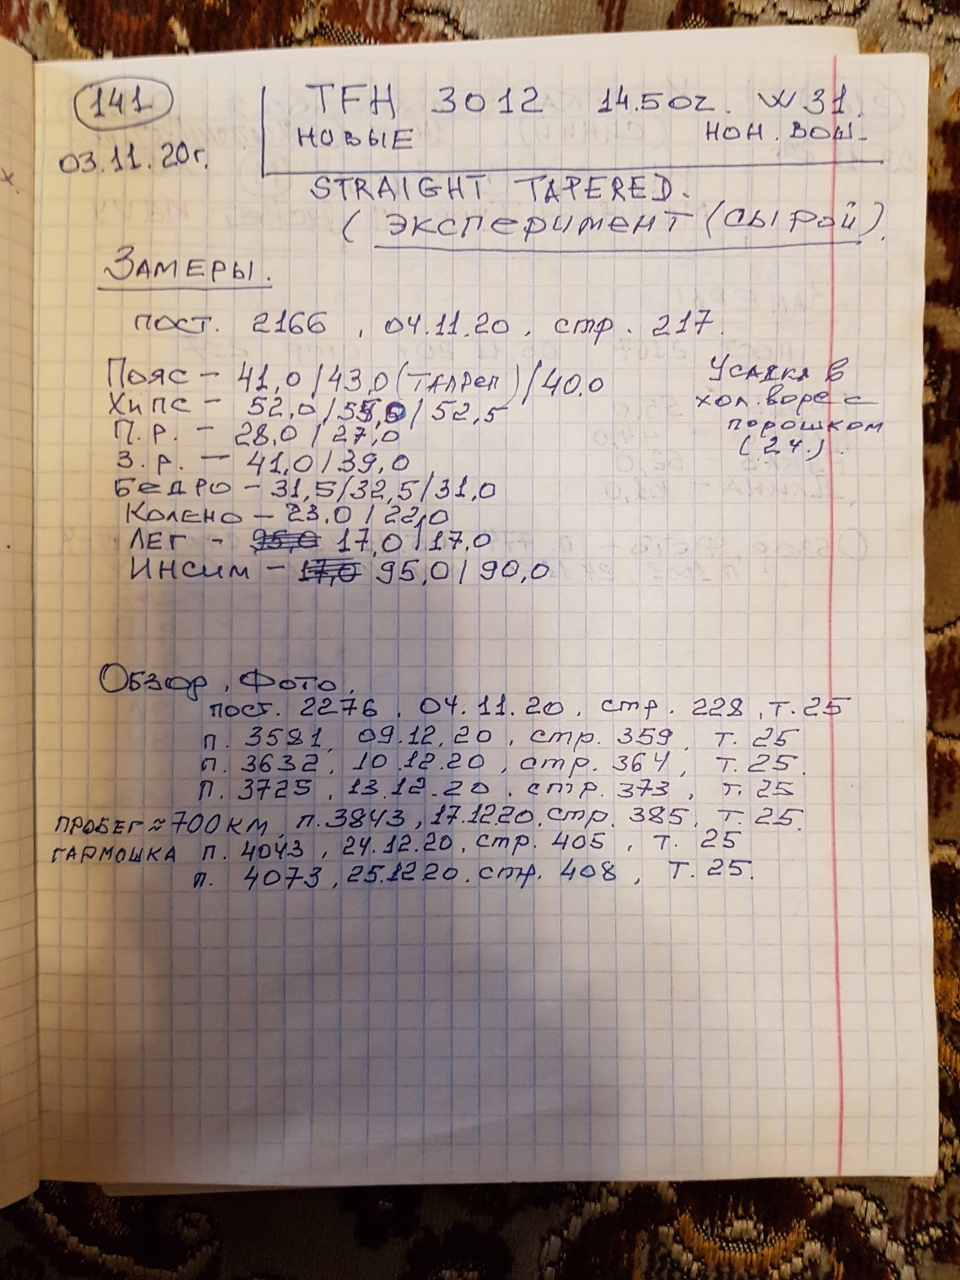 141
03.11.20г.
TFH 3012 14.50z. W31.
НОВЫЕ НОН. ВОШ.
STRAIGHT TAPERED.
(ЭКСПЕРИМЕНТ (СЫРОЙ).
ЗАМЕРЫ.
ПОСТ. 2166, 04.11.20, стр. 217.
ПОЯС - 41,0/43,0 (ТАЛРЕП)/40.0
ХИПС - 52,0/55,5/52,5
П.Р. - 28,0/27,0
З.Р. - 41,0/39,0
БЕДРО - 31,5/32,5/31,0
КОЛЕНО - 23,0/22,0
ЛЕГ - 95,0 17,0/17,0
ИНСИМ - 17,0 95,0/90,0
УСАДКА В
ХОЛ. ВОДЕ С
ПОРОШКОМ
(2 Ч.).
ОБЗОР, ФОТО,
ПОСТ. 2276, 04.11.20, стр. 228, т. 25
п. 3581, 09.12.20, стр. 359, т. 25
п. 3632, 10.12.20, стр. 364, т. 25.
п. 3725, 13.12.20, стр. 373, т. 25
ПРОБЕГ ≈ 700 КМ, п. 3843, 17.12.20. стр. 385, т. 25.
ГАРМОШКА п. 4043, 24.12.20, стр. 405, т. 25
п. 4073, 25.12.20. стр. 408, т. 25.